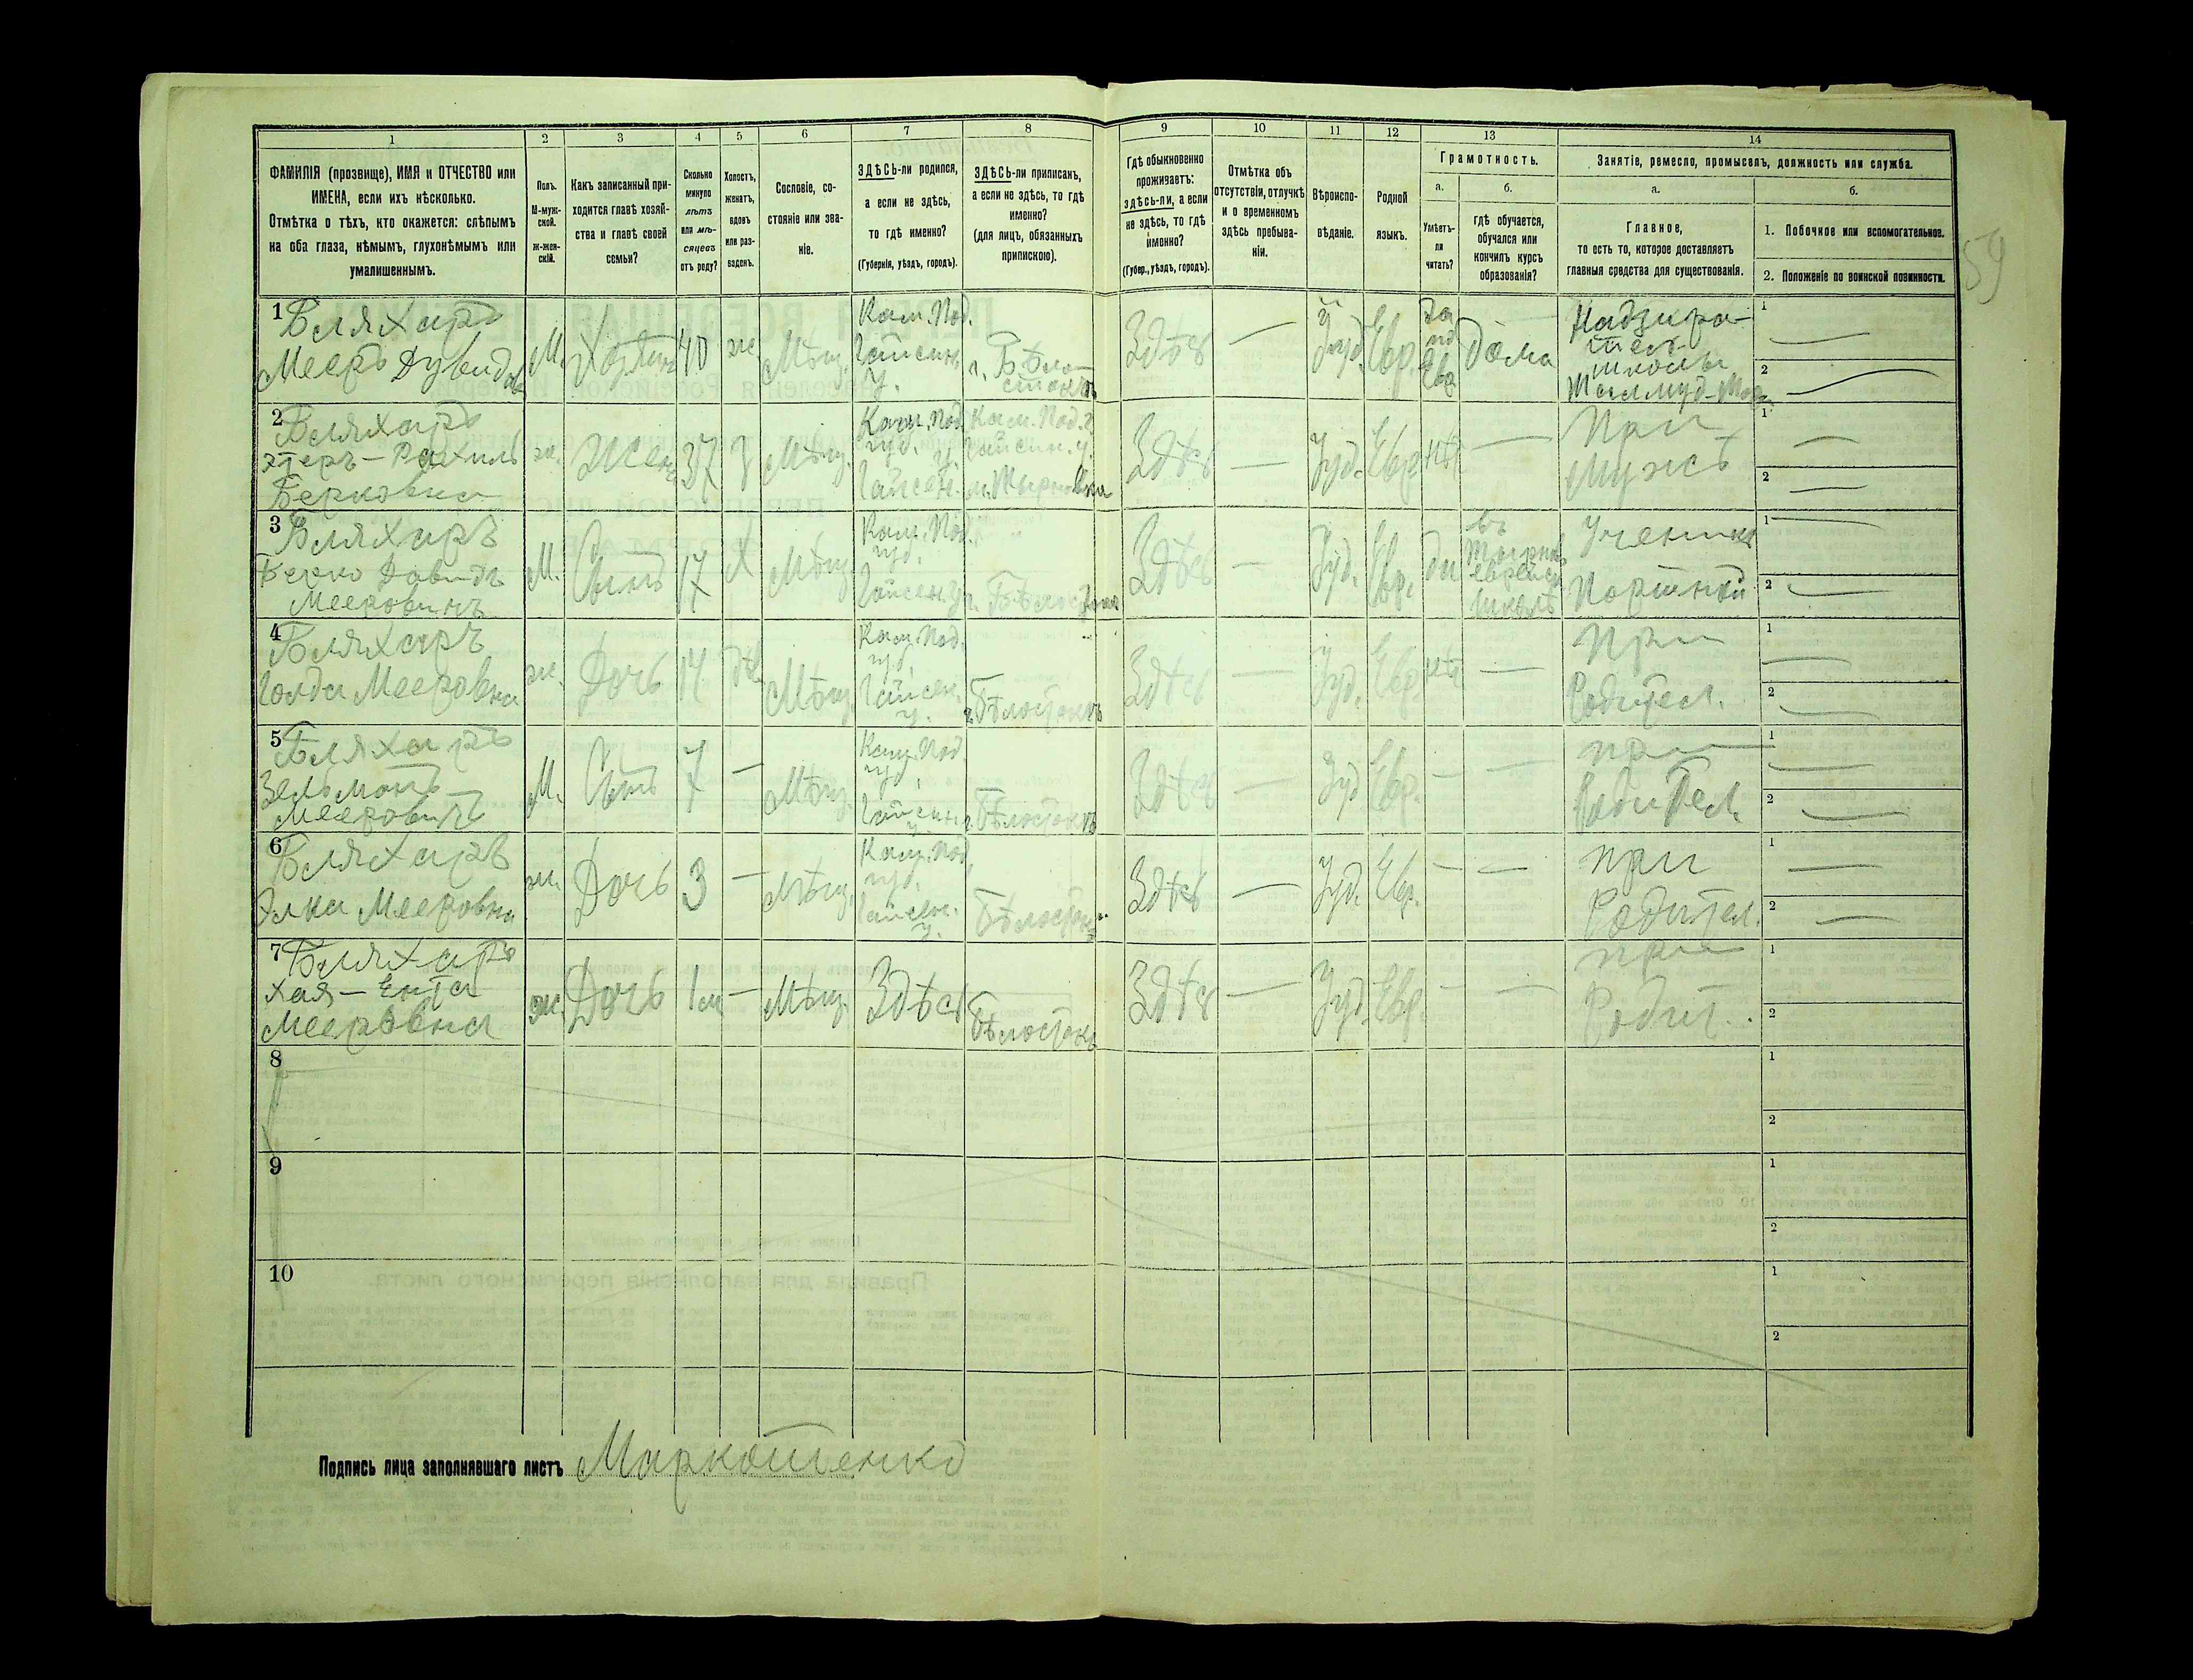 1 2 3 4 5 6 7 8 9 10 11 12 13 14
ФАМИЛІЯ (прозвище), ИМЯ и ОТЧЕСТВО или
ИМЕНА, если ихъ нѣсколько.
Отмѣтка о тѣхъ, кто окажется: слѣпымъ
на оба глаза, нѣмымъ, глухонѣмымъ или
умалишеннымъ.
Полъ.
М-муж-
ской.
ж-жен-
скій.
Какъ записанный при-
ходится главѣ хозяй-
ства и главѣ своей
семьи?
Сколько
минуло
лѣтъ
или мѣ-
сяцевъ
отъ роду?
Холостъ,
женатъ,
вдовъ
или раз-
веденъ.
Сословіе, со-
стояніе или зва-
ніе.
ЗДѢСЬ-ли родился,
а если не здѣсь,
то гдѣ именно?
(Губернія, уѣздъ, городъ).
ЗДѢСЬ-ли приписанъ,
а если не здѣсь, то гдѣ
именно?
(для лицъ, обязанныхъ
припискою).
Гдѣ обыкновенно
проживаетъ:
здѣсь-ли, а если
не здѣсь, то гдѣ
именно?
(Губер., уѣздъ, городъ).
Отмѣтка объ
отсутствіи, отлучкѣ
и о временномъ
здѣсь пребыва-
ніи.
Вѣроиспо-
вѣданіе.
Родной
языкъ.
Грамотность.
а.
Умѣетъ-
ли
читать?
б.
гдѣ обучается,
обучался или
кончилъ курсъ
образованія?
Занятіе, ремесло, промыселъ, должность или служба.
а.
Главное,
то есть то, которое доставляетъ
главныя средства для существованія.
б.
1. Побочное или вспомогательное.
2. Положеніе по воинской повинности.
59
1 Бляхаръ
Мееръ Дувидов
М. Хозяинъ 40 ж Мѣщ.
Кам. Под.
Гайсин.
у.
г. Бѣло-
стокъ
Здѣсь — Іуд. Евр.
да
по
Евр
Дома
Надзира-
тель
школы
Талмуд-Тора
1
2
2 Бляхаръ
Этеръ - Рахиль
Берковна
ж. Жена 37 З Мѣщ.
Кам. Под.
губ.
Гайсин.
Кам. Под. г.
Гайсин. у.
Здѣсь — Іуд. Евр. нѣт —
При
Мужѣ
1
2
3 Бляхаръ
Берко Давидъ
Мееровичъ
М. Сынъ 17 Х Мѣщ.
Кам. Под.
губ.
Гайсин. у.
г. Бѣлосток
Здѣсь — Іуд. Евр. да
въ
еврейск
школѣ
Ученикъ
Портной
1
2
4 Бляхаръ
Голда Мееровна
ж. Дочь 14 дѣв Мѣщ.
Кам. Под.
губ.
Гайсин.
у.
г. Бѣлостокъ
Здѣсь — Іуд. Евр. нѣт —
При
Родител.
1
2
5 Бляхаръ
Зельманъ
Мееровичъ
М. Сынъ 7 — Мѣщ.
Кам. Под
губ.
Гайсин.
у.
г. Бѣлостокъ
Здѣсь — Іуд Евр. — —
при
Родител.
1
2
6 Бляхаръ
Элка Мееровна
ж. Дочь 3 — Мѣщ.
Кам. Под.
губ.
Гайсин.
у.
Бѣлостокъ
Здѣсь — Іуд. Евр. — —
при
Родител.
1
2
7 Бляхаръ
Хая - Ента
Мееровна
ж. Дочь 1 м — Мѣщ. Здѣсь
Бѣлостокъ
Здѣсь — Іуд. Евр — —
при
Родит.
1
2
8
1
2
9
1
2
10
1
2
Подпись лица заполнявшаго листъ Маркотенко